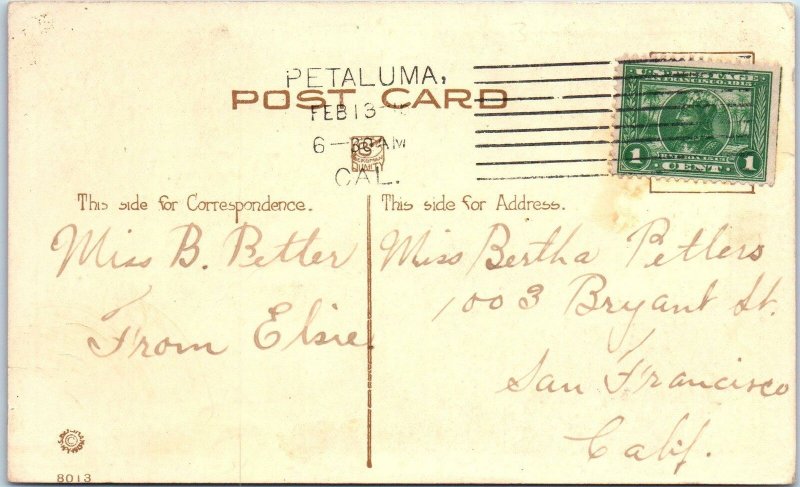 PETALUMA,
POST CARD
FEB 13
6-30AM
CAL.
U.S. POSTAGE
SAN FRANCISCO 1915
1 CENT 1
This side for Correspondence.
This side for Address.
Miss B. Petter
From Elsie
Miss Bertha Petters
1003 Bryant St.
San Francisco
Calif.
8013